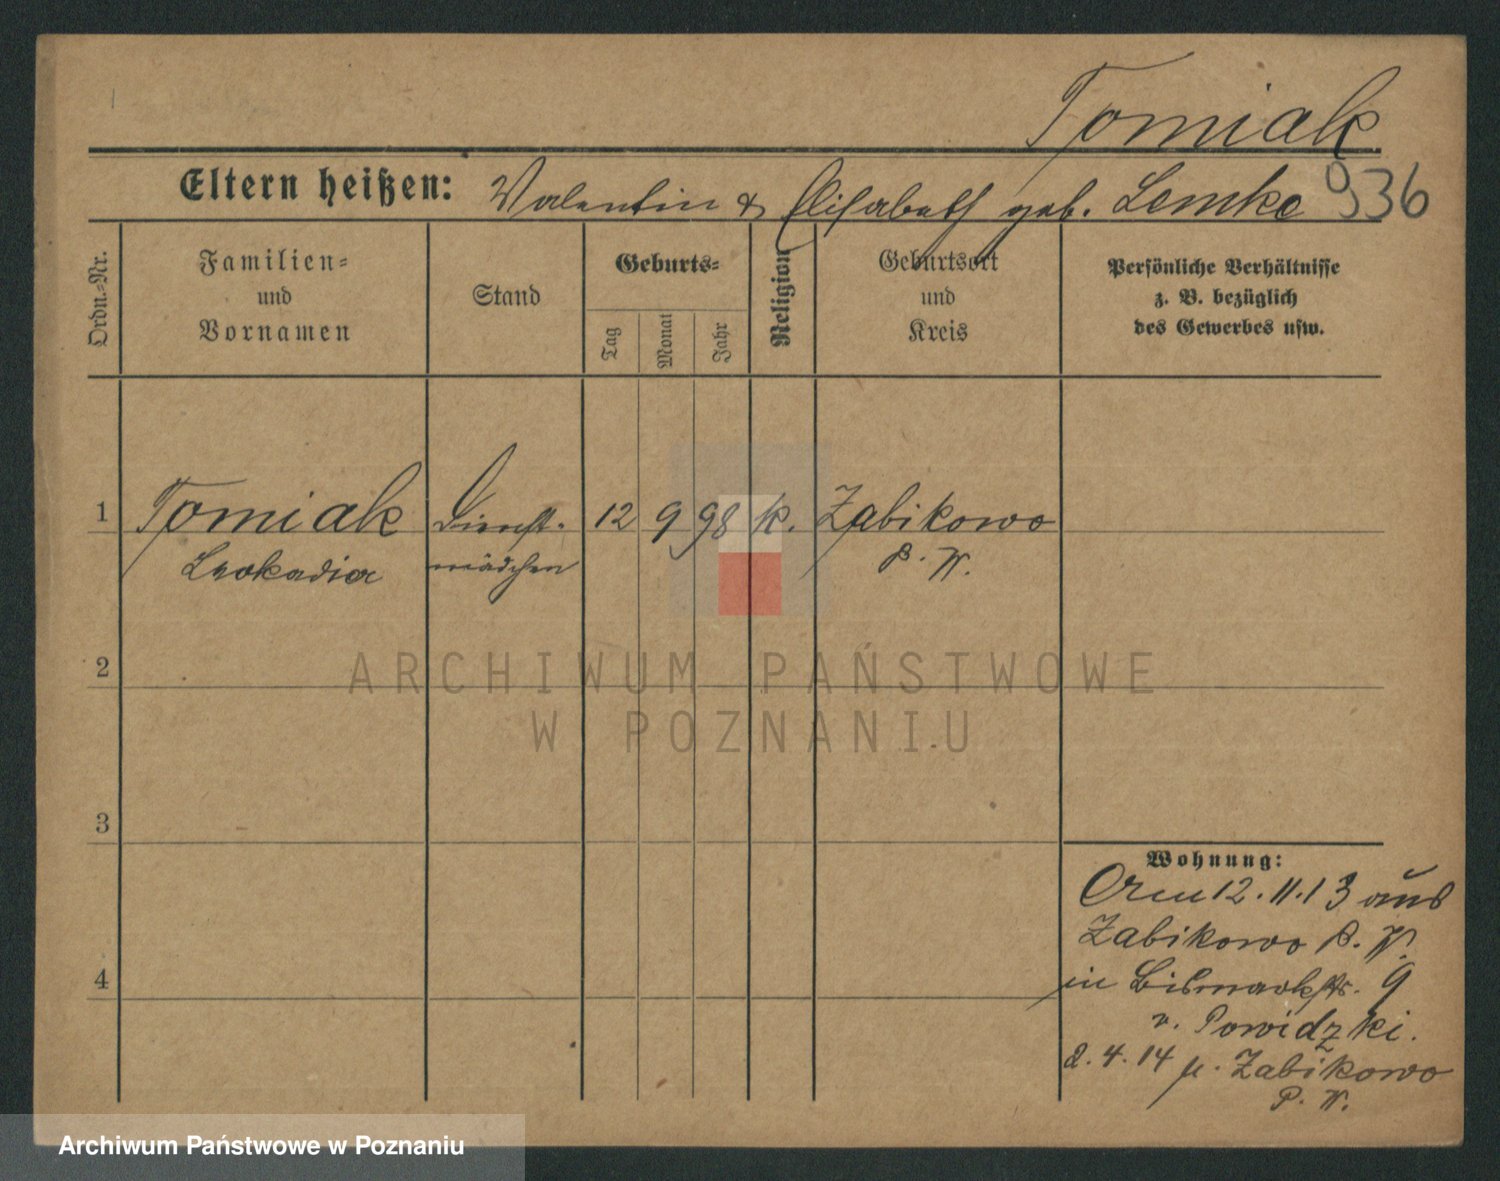 Tomiak
Eltern heißen: Valentin & Elisabeth geb. Lemke 936
Ordn.-Nr.
Familien-
und
Vornamen
Stand
Geburts-
Tag
Monat
Jahr
Religion
Geburtsort
und
Kreis
Persönliche Verhältnisse
z. B. bezüglich
des Gewerbes usw.
1 Tomiak Dienst- 12 9 98 k. Zabikowo
Leokadia mädchen P. W.
2
ARCHIWUM PAŃSTWOWE
W POZNANIU
3
Wohnung:
Am 12.11.13 aus
Zabikowo P. W.
4
in Bismarckstr. 9
v. Powidzki.
2.4.14 n. Zabikowo
P. W.
Archiwum Państwowe w Poznaniu